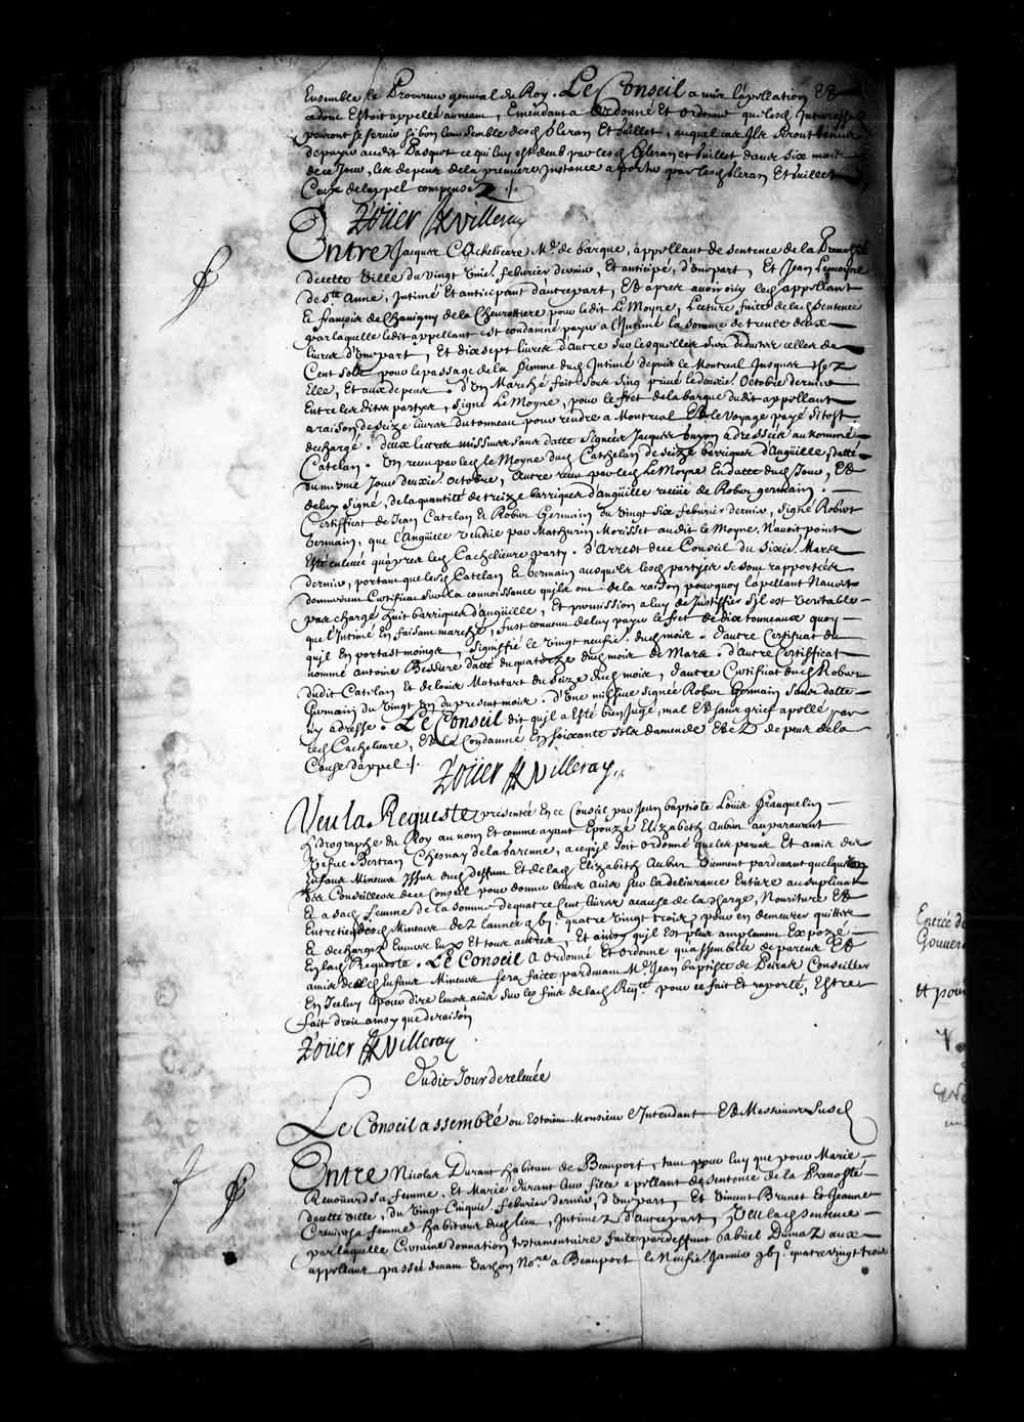 Ensemble le Procureur general du Roy. Le Conseil a mis l'apellation Et
ce dont Estoit appellé au neant, Emendant a Ordonné et ordonne que lesd. Interessez
pouront se servir si bon leur semble desd. Gleran Et Guillet, auquel cas Ils seront tenus
de payer aud. Pasquet ce qui luy est deub par lesd. Gleran et Guillet dans six mois
de ce Jour, les depens de la premiere Instance a porter par lesd. Gleran Et Guillet
Ceux de l'appel compensez ./.
Roüer de Villeray
Entre Jacques Cachelieure Md. de barque, appellant de sentence de la Prevosté
de cette Ville du vingt unie. febvrier dernier, Et anticipé, d'une part, Et Jean Lemoyne
de Ste. Anne, Intimé Et anticipant d'autre part, Et aprés avoir oüy led. appellant
Et françois de Chavigny de la Chevrottiere pour ledit Le Moyne, Lecture faite de lad. sentence
par laquelle ledit appellant est condamné payer a l'Intimé la somme de trente deux
livres d'une part, Et dix sept livres d'autre sur lesquelles sera deduites celles de
Cent sols pour le passage de la femme dud. Intimé depuis le Montreal Jusques chez
Elle, Et aux depens. d'Un Marché fait sous sing privé le deuxie. Octobre dernier
Entre lesdites partyes, signé Le Moyne, pour le fret de la barque dudit appellant
a raison de seize livres du tonneau pour rendre a Montreal Et le voyage payé si tost
dechargé. deux lettres missives sans datte signées Jacques adressées au nommé
Catelan. Un receu par led. le Moyne dud. Cathelan de seize barriques d'Angüille, datté
du mesme Jour deuxie. Octobre, Autre receu par led. Le Moyne En datte dud. Jour, Et
de luy signé, de la quantité de treize barriques d'angüille receüe de Rober germain.
Certifficat de Jean Catelan Et Rober Germain du vingt six febvrier dernier, signé Robert
Germain, que l'Angüille vendüe par Mathurin Morisset audit le Moyne, N'avoit point
Esté enlevée qu'aprés led. Cachelieure party. d'Arrest de ce Conseil du sixie. Mars
dernier, portant que lesd. Catelan Et Germain ausquels lesd. partyes se sont rapportées
donneroient Certificat sur la connoissance qu'ils ont de la raison pourquoy l'apellant N'avoit
pas chargé huit barriques d'angüille, Et permission a luy de Justiffier s'il est veritable
que l'Intimé En faisant marché, fust convenu de luy payer le fret de dix tonneaux quoy
qu'il en portast moins, signiffié le vingt neufie. dud. mois. d'autre Certificat du
nommé Antoine Bessiere datté du quatorze dud. mois de Mars. d'autre Certifficat
dudit Catelan Et de louis Motatart du seize dud. mois, d'autre Certificat dud. Rober
Germain du vingt Un du present mois. d'Une missive signée Rober Germain sans datte
ny adresse. Le Conseil dit qu'il a Esté bien Jugé, mal Et sans grief apellé par
led. Cachelieure, Et l'a Condamné En soixante sols d'amende Et ez depens de la
Cause d'appel ./.
Roüer de Villeray
Veu la Requeste presentée En ce Conseil par Jean baptiste Louis franquelin
hidrographe du Roy au nom Et comme ayant Epouzé Elizabeth Aubert auparavant
Vefue Bertran Chesnay de la Garenne, a ce qu'il soit ordonné que les parens Et amis des
Enfans Mineurs Issus dud. deffunt Et de lad. Elizabeth Aubert viennent pardevant quelqu'un
des Conseillers de ce Conseil pour donner leurs avis sur la delivrance Entiere au supliant
Et a sad. femme de la somme de quatre Cent livres a cause de la charge, Nouriture Et
Entretien desd. Mineurs dez l'année g bic. quatre vingt trois, pour en demeurer quittes
Et dechargez Envers Eux Et tous autres, Et ainsy qu'il Est plus amplement Expozé
En lad. Requeste. Le Conseil a ordonné Et ordonne qu'assemblée de parens Et
amis desd. Enfans Mineurs sera faite pardevant Me. Jean baptiste de Peiras Conseiller
En Iceluy pour dire leurs avis sur les fins de lad. Reqte. pour ce fait Et raporté, Estre
fait droit ainsy que de raison
Roüer de Villeray
Dudit Jour de relevée
Le Conseil assemblé ou Estoient Monsieur l'Intendant Et Messieurs susd.
Entre Nicolas Durant habitant de Beauport, tant pour luy que pour Marie
Renoüard sa femme, Et Marie durant leur fille apellant de sentence de la Prevosté
de cette ville, du Vingt Cinquie. febvrier dernier, d'une part, Et Vincent Brunet Et Jeanne
sa femme habitans dud. lieu, Intimez d'autre part, Veu lad. sentence
par laquelle Certaine donnation testamentaire faite par deffunt Gabriel Dumaz aux
appellans passée devant Vachon Nore. a Beauport le Neufie. Janvier g bic. quatre vingt trois
Entrée de
Gouver
et pour